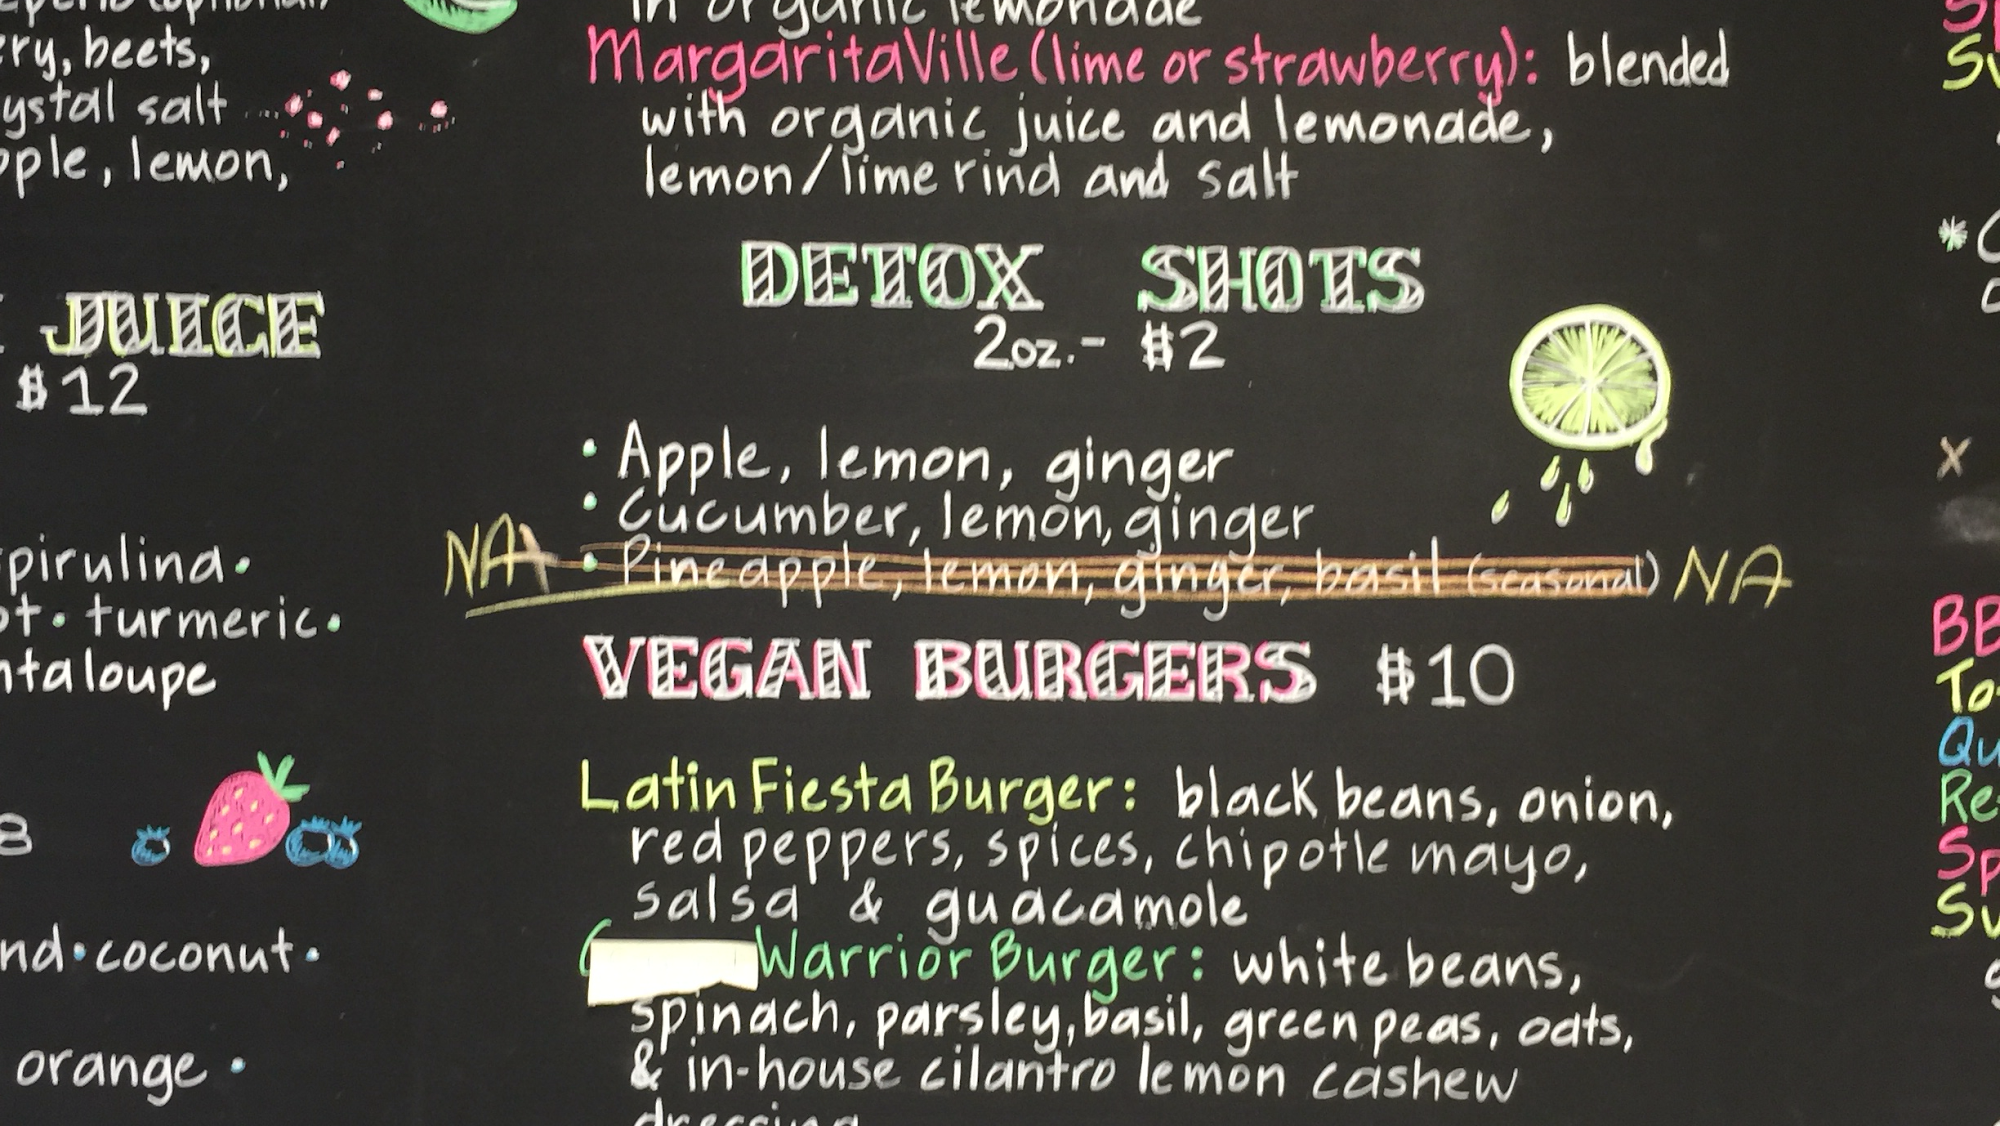 ry, beets,
ystal salt
pple, lemon,
JUICE
$12
pirulina.
ot. turmeric.
ntaloupe
8
nd.coconut.
orange.
in organic lemonade
MargaritaVille (lime or strawberry): blended
with organic juice and lemonade,
lemon/lime rind and salt
DETOX SHOTS
2oz.- $2
• Apple, lemon, ginger
• Cucumber, lemon, ginger
NA • Pineapple, lemon, ginger, basil (seasonal) NA
VEGAN BURGERS $10
Latin Fiesta Burger: black beans, onion,
red peppers, spices, chipotle mayo,
salsa & guacamole
Warrior Burger: white beans,
spinach, parsley, basil, green peas, oats,
& in-house cilantro lemon cashew
dressing
Sp
Su
*
x
BB
To
Qu
Re
Sp
Su